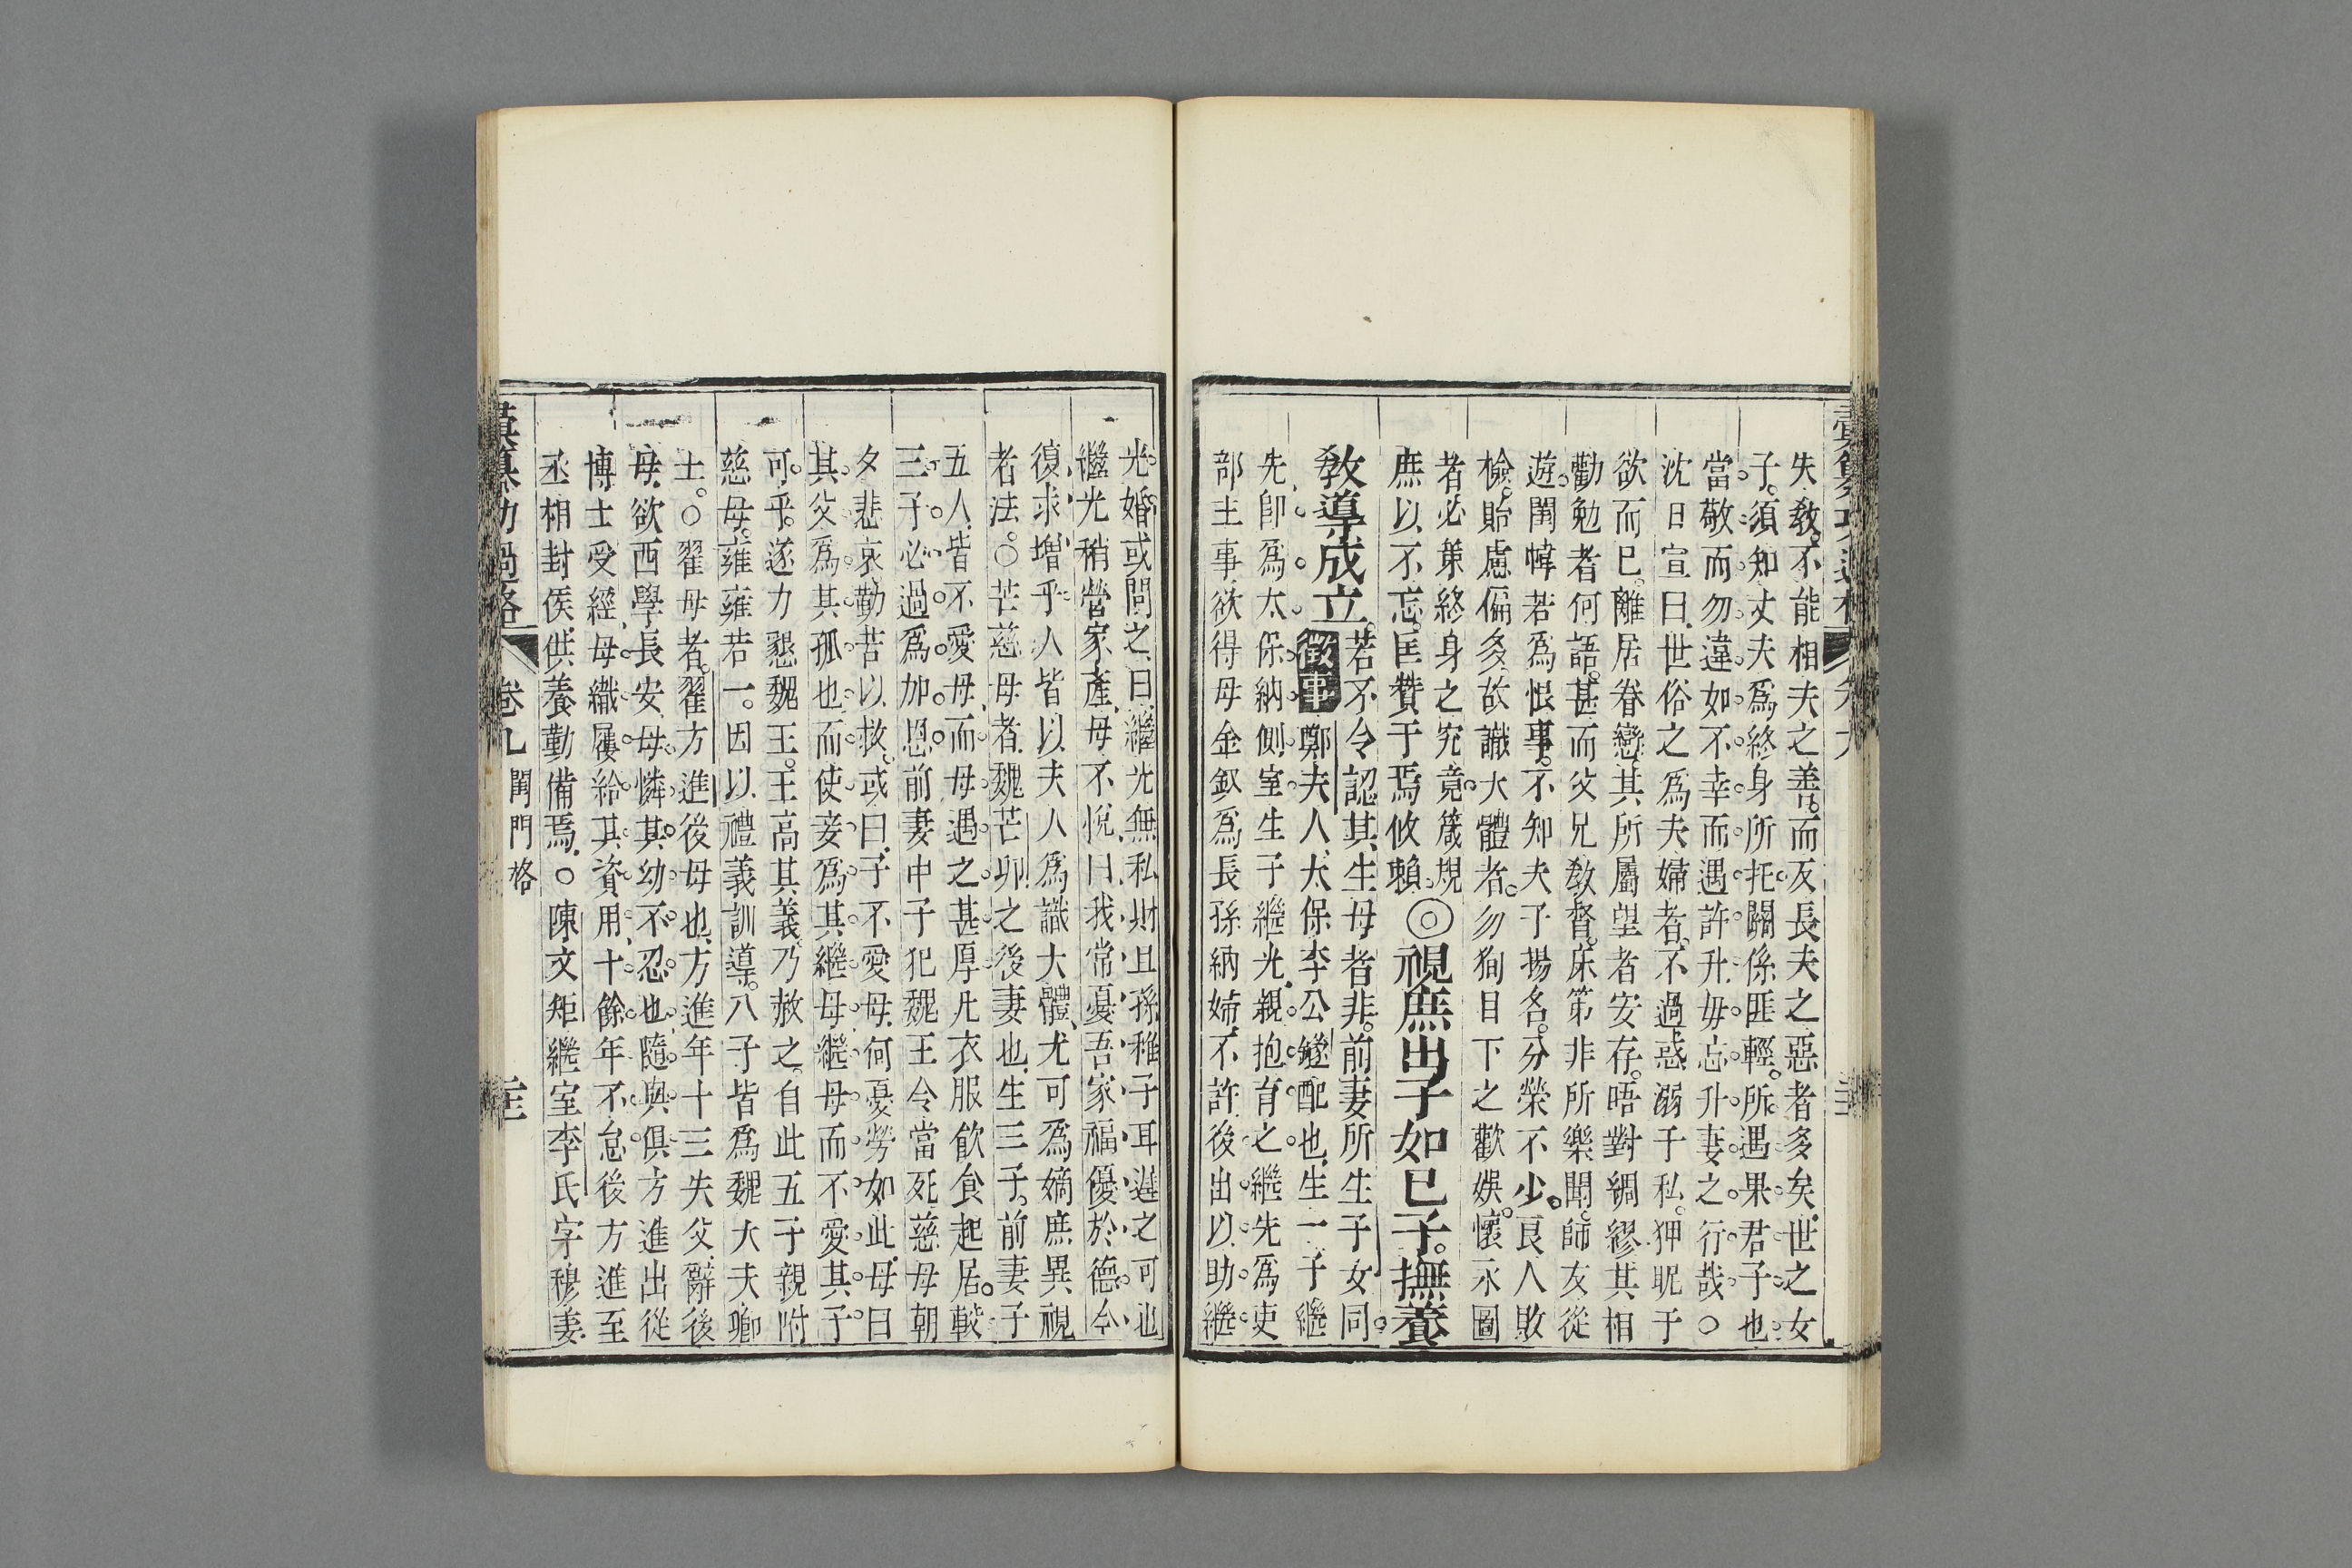 失教。不能相夫之善。而反長夫之惡者多矣。世之女
子。須知丈夫爲終身所托。關係匪輕。所遇果君子也。
當敬而勿違。如不幸而遇許升。毋忘升妻之行哉。○
沈日宣曰。世俗之爲夫婦者。不過惑溺于私。狎昵于
欲而已。離居眷戀。其所屬望者安存。晤對綢繆。其相
勸勉者何語。甚而父兄教督。床笫非所樂聞。師友從
遊。閨幃若爲恨事。不知夫子揚名。分榮不少。良人敗
檢。貽慮偏多。故識大體者。勿狥目下之歡娛。懷永圖
者。必策終身之究竟。箴規
庶以不忘。匡贊于焉攸賴。◎視庶出子如已子。撫養
教導成立。若不令認其生母者非。前妻所生子女同。
徵事 鄭夫人。太保李公鐩配也。生一子繼
先。卽爲太保納側室。生子繼光。親抱育之。繼先爲吏
部主事。欲得母金釵爲長孫納婦。不許。後出以助繼
光婚。或問之。曰。繼光無私財。且孫稚子耳。遲之可也
繼光稍營家產。母不悅曰。我常憂吾家福優於德。今
復求增乎。人皆以夫人爲識大體。尤可爲嫡庶異視
者法。○芒慈母者。魏芒卯之後妻也。生三子。前妻子
五人。皆不愛母。而母遇之甚厚。凡衣服飲食起居。較
三子必過爲加恩。前妻中子犯魏王令當死。慈母朝
夕悲哀。勤苦以救。或曰。子不愛母。何憂勞如此。母曰
其父爲其孤也。而使妾爲其繼母。繼母而不愛其子
可乎。遂力懇魏王。王高其義。乃赦之。自此五子親附
慈母。雍雍若一。因以禮義訓導。八子皆爲魏大夫卿
士。○翟母者。翟方進後母也。方進年十三失父。辭後
母。欲西學長安。母憐其幼。不忍也。隨與俱。方進出從
博士受經。母織屨給其資用。十餘年不怠。後方進至
丞相封侯。供養勤備焉。○陳文矩繼室李氏字穆姜
彙纂功過格 卷九 閨門格